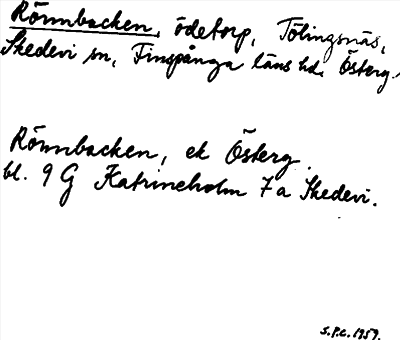 Rönnbacken, ödetorp, Tölingsnäs,
Skedevi sn, Finspånga läns hd. Österg.
Rönnbacken, ek Österg.
bl. 9 G Katrineholm 7a Skedevi.
S.P.C. 1959.